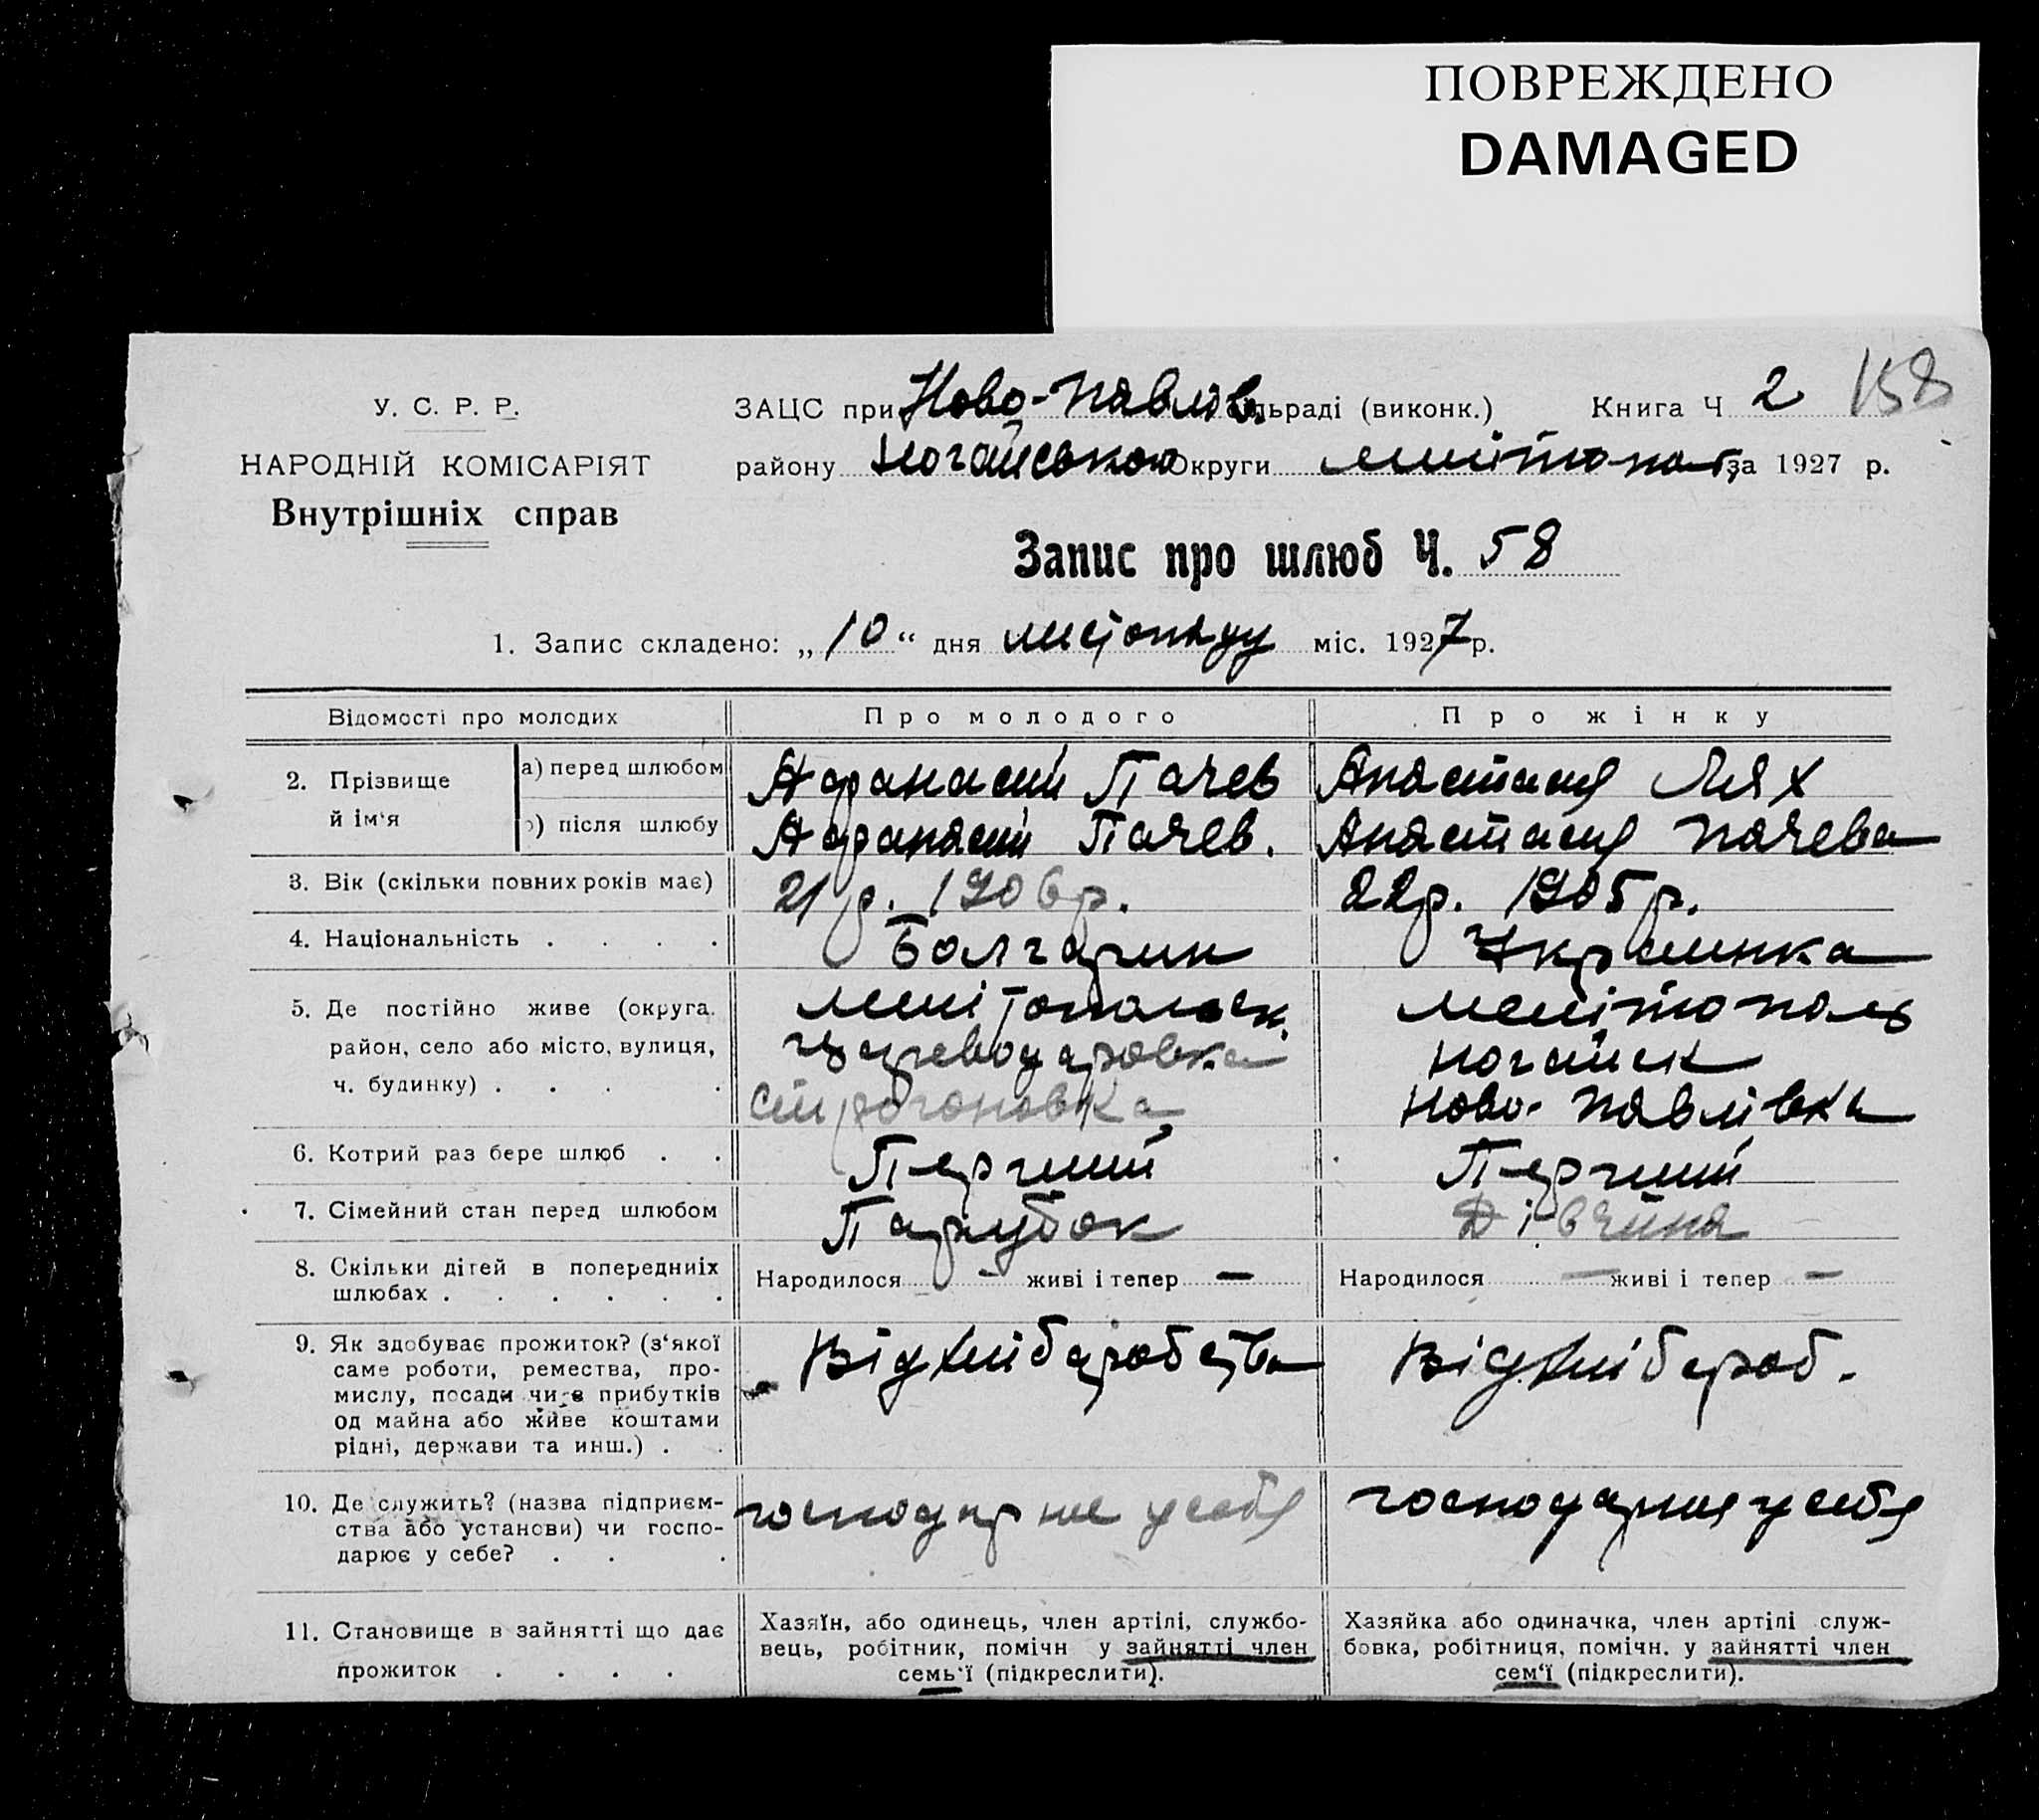 ПОВРЕЖДЕНО
DAMAGED
У. С. Р. Р.
НАРОДНІЙ КОМІСАРІЯТ
Внутрішніх справ
ЗАЦС при Ново-Павлів. сільраді (виконк.) Книга Ч 2 158
району Ногайського Округи Мелітопол. за 1927 р.
Запис про шлюб Ч. 58
1. Запис складено: „10“ дня листопаду міс. 1927 р.
Відомості про молодих Про молодого Про жінку
2. Прізвище й ім‘я а) перед шлюбом Афанасий Пачев Анастасия Лях
б) після шлюбу Афанасий Пачев. Анастасия Пачева
3. Вік (скільки повних років має) 21 р. 1906 р. 22 р. 1905 р.
4. Національність . . . . Болгарин Украинка
5. Де постійно живе (округа, Мелітопольск. Мелітополь
район, село або місто, вулиця, Цареводаровка Ногайск
ч. будинку) . . . . Строгоновка Ново-Павлівка
6. Котрий раз бере шлюб . . Перший Перший
7. Сімейний стан перед шлюбом Парубок Дівчина
8. Скільки дітей в попередниіх Народилося - живі і тепер — Народилося — живі і тепер —
шлюбах . . . . . .
9. Як здобуває прожиток? (з‘якої Від хліборобства Від хлібероб.
саме роботи, ремества, про-
мислу, посади чи з прибутків
од майна або живе коштами
рідні, держави та инш.) . .
10. Де служить? (назва підприєм- господарше у себя господарша у себя
ства або установи) чи госпо-
дарює у себе? . . .
11. Становище в зайнятті що дає
прожиток . . . .
Хазяїн, або одинець, член артілі, службо-
вець, робітник, помічн у зайнятті член
семь‘ї (підкреслити).
Хазяйка або одиначка, член артілі служ-
бовка, робітниця, помічн. у зайнятті член
сем‘ї (підкреслити).